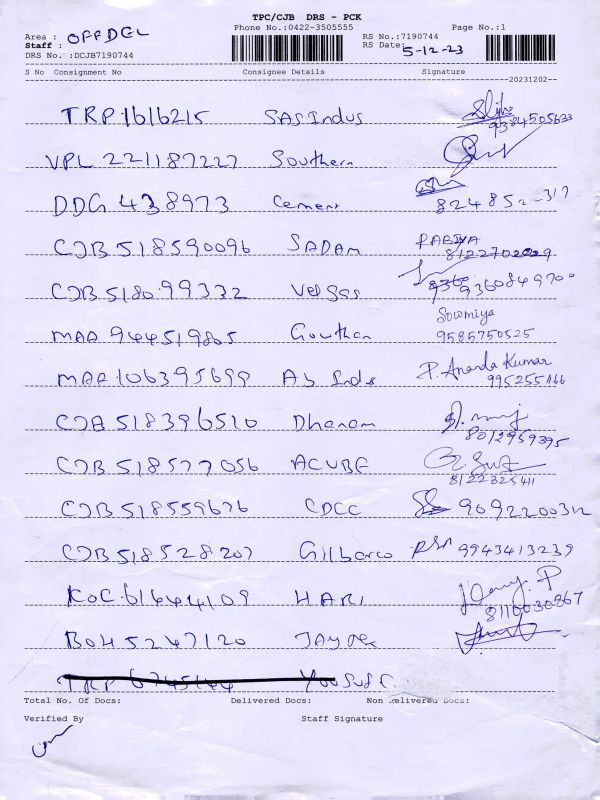 TPC/CJB DRS - PCK
Phone No.:0422-3505555 Page No.:1
Area : OFFDEL RS No.:7190744
Staff : RS Date: 5-12-23
DRS No. :DCJB7190744
S No Consignment No Consignee Details Signature
20231202
TRP 1616215 SAS Indus 9384505633
VPL 221187227 Southern
DDG 438973 Cement 824852-317
CJB 518590096 SADAM RABIYA 8122702029
CJB 518099332 9360849700
MAA 944519805 Gowthan Sowmiya 9585750525
MAA 106395699 As Inds P. Ananda Kumar 995255466
CJB 518396510 Dhanam 8012959395
CJB 518577056 ACUBE 8122325411
CJB 518559676 CDCC 9092200312
CJB 518528207 Gilbarco 9943413239
KOC 61644109 HARI 8110030867
BOH 5247120
TRP 6745144 Yousuf
Total No. Of Docs: Delivered Docs: Non Delivered Docs:
Verified By Staff Signature